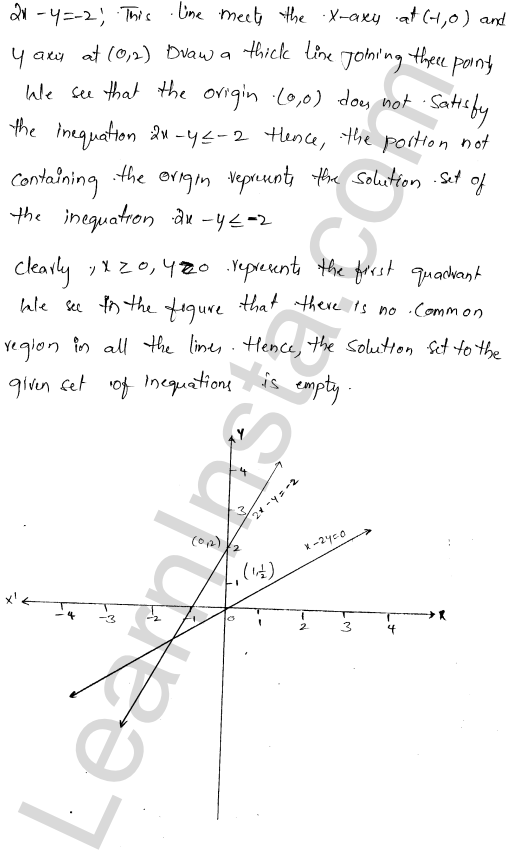 2x - y = -2; This line meets the x-axis at (-1,0) and
y axis at (0,2) Draw a thick line joining these points
We see that the origin (0,0) does not satisfy
the inequation 2x - y ≤ -2 Hence, the portion not
containing the origin represents the solution set of
the inequation 2x - y ≤ -2
Clearly, x ≥ 0, y ≥ 0 represents the first quadrant
We see in the figure that there is no common
region in all the lines. Hence, the solution set to the
given set of inequations is empty.
Y
4
3
2x - y = -2
(0,2)
2
x - 2y = 0
1
(1, 1/2)
X' -4 -3 -2 -1 0 1 2 3 4 X
LearnInsta.com